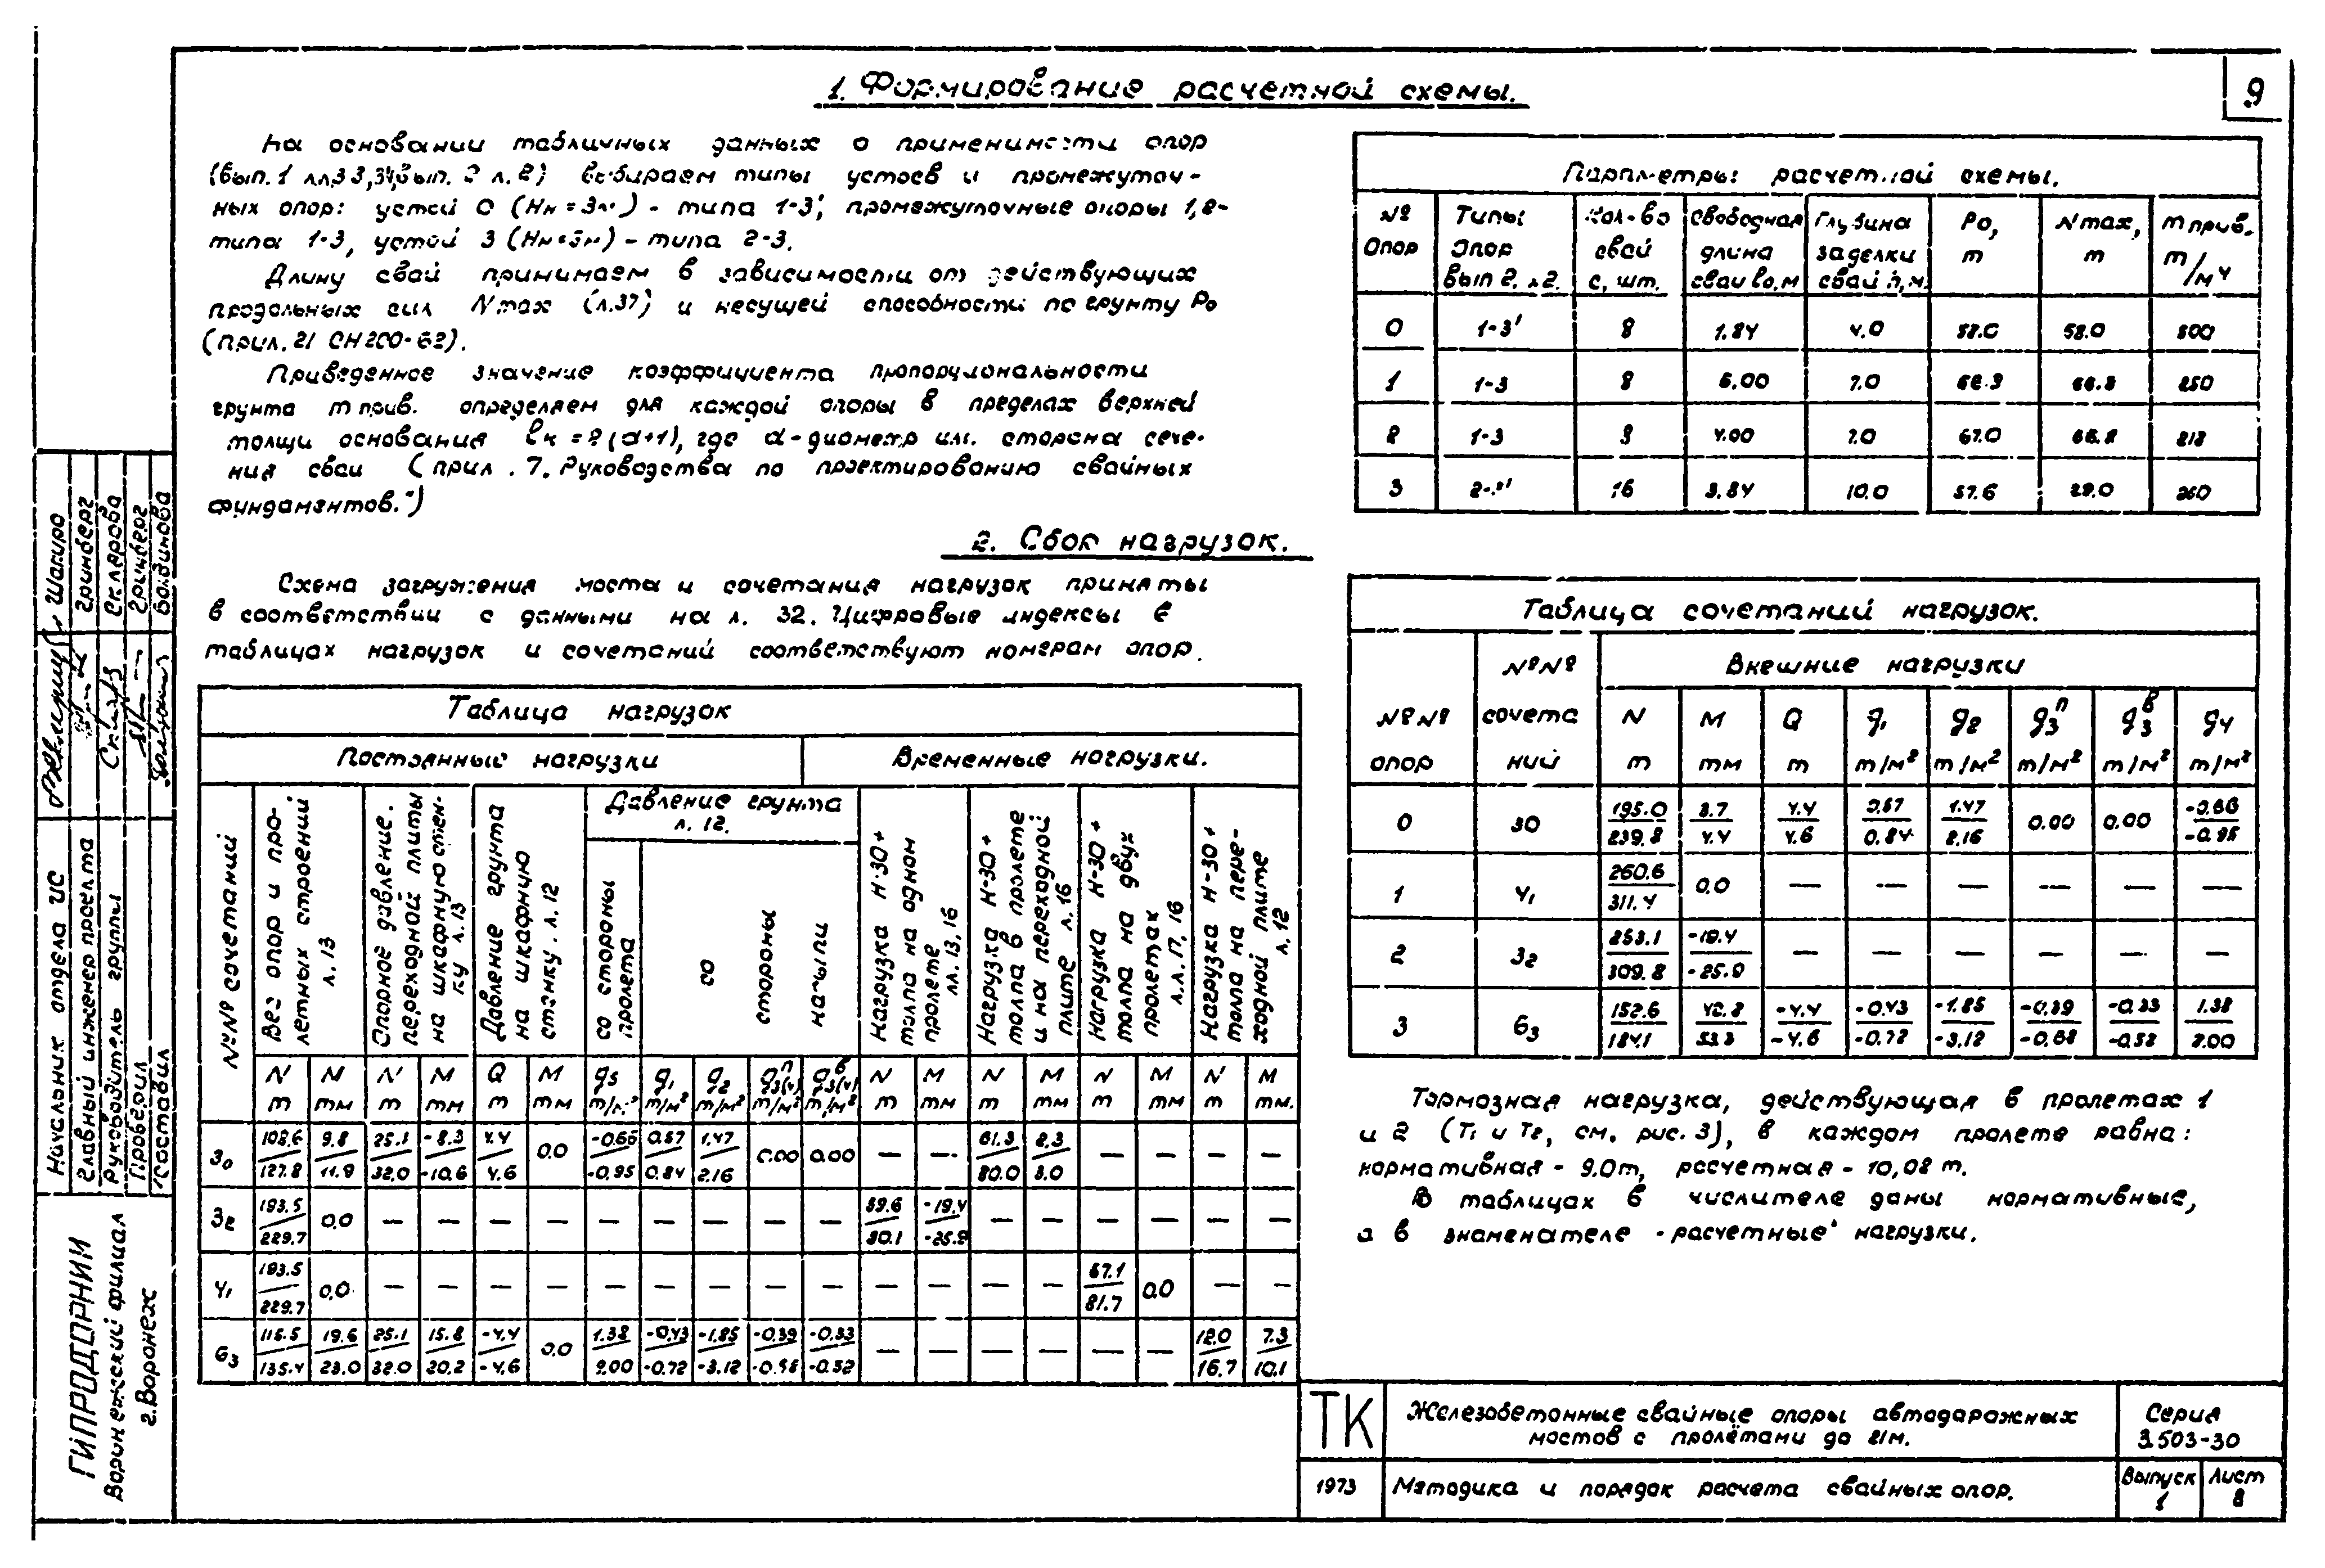 1. Формирование расчетной схемы.
9
На основании табличных данных о применимости опор
(вып. 1 лл. 33, 34, вып. 2 л. 2) выбираем типы устоев и промежуточ-
ных опор: устой 0 (Нн = 3м) - типа 1-3', промежуточные опоры 1, 2-
типа 1-3, устой 3 - типа 2-3.
Длину свай принимаем в зависимости от действующих
продольных сил Nmax (л.37) и несущей способности по грунту Ро
(прил. 21 СН 200-62).
Приведенное значение коэффициента пропорциональности
грунта m прив. определяем для каждой опоры в пределах верхней
толщи основания ℓк = 2(d+1), где d - диаметр или сторона сече-
ния сваи (прил. 7. Руководства по проектированию свайных
фундаментов.")
Параметры расчетной схемы.
№ опор | Типы опор вып 2. л2. | Кол-во свай с, шт. | Свободная длина сваи ℓо, м | Глубина заделки свай h, м. | Ро, т | Nmax, т | m прив. т/м4
0 | 1-3' | 8 | 1.84 | 4.0 | 58.0 | 58.0 | 500
1 | 1-3 | 8 | 5.00 | 7.0 | 250
2 | 1-3 | 8 | 4.00 | 7.0 | 67.0 | 66.2 | 212
3 | 16 | 3.84 | 10.0 | 57.6 | 29.0 | 260
2. Сбор нагрузок.
Схема загружения моста и сочетания нагрузок приняты
в соответствии с данными на л. 32. Цифровые индексы в
таблицах нагрузок и сочетаний соответствуют номерам опор.
Таблица нагрузок
Постоянные нагрузки | Временные нагрузки.
№№ сочетаний
Вес опор и про-
летных строений
л. 13
Опорное давление.
переходной плиты
на шкафную стен-
ку л. 13
Давление грунта
на шкафную
стенку. л. 12
Давление грунта
л. 12.
со стороны
пролета
со стороны насыпи
Нагрузка Н-30+
толпа на одном
пролете
лл. 13, 16
Нагрузка Н-30+
толпа в пролете
и на переходной
плите л. 16
Нагрузка Н-30+
толпа на двух
пролетах
л.л. 17, 16
Нагрузка Н-30+
толпа на пере-
ходной плите
л. 12
N | М | N | М | Q | М | g5 | g1 | g2 | g п 3(4) | g в 3(4) | N | М | N | М | N | М | N | М
т | тм | т | тм | т | тм | т/м² | т/м² | т/м² | т/м² | т/м² | т | тм | т | тм | т | тм | т | тм.
30 | 108,6/127.8 | 9.8/11.9 | 25.1/32.0 | -8.3/-10.6 | 4.4/4.6 | 0.0 | -0.66/-0.95 | 0.57/0.84 | 1.47/2.16 | 0.00 | 0.00 | — | — | 61.3/80.0 | 2.3/3.0 | — | — | — | —
32 | 193.5/229.7 | 0.0 | — | — | — | — | — | — | — | — | — | 59.6/80.1 | -19.4/-25.9 | — | — | — | — | — | —
41 | 193.5/229.7 | 0.0 | — | — | — | — | — | — | — | — | — | — | — | — | — | 67.1/81.7 | 0.0 | — | —
63 | 115.5/135.4 | 19.6/23.0 | 25.1/32.0 | 15.8/20.2 | -4.4/-4.6 | 0.0 | 1.38/2.00 | -0.43/-0.72 | -1.85/-3.12 | -0.39/-0.68 | -0.33/-0.52 | — | — | — | — | — | — | 12.0/16.7 | 7.3/10.1
Таблица сочетаний нагрузок.
№№ опор | №№ сочета ний | Внешние нагрузки
N | М | Q | g1 | g2 | g п 3 | g в 3 | g4
т | тм | т | т/м² | т/м² | т/м² | т/м² | т/м²
0 | 30 | 195.0/239.8 | 3.7/4.4 | 4.4/4.6 | 0.57/0.84 | 1.47/2.16 | 0.00 | 0.00 | -0.66/-0.95
1 | 41 | 260.6/311.4 | 0.0 | — | — | — | — | — | —
2 | 32 | 253.1/309.8 | -19.4/-25.9 | — | — | — | — | — | —
3 | 63 | 152.6/184.1 | 42.7/53.3 | -4.4/-4.6 | -0.43/-0.72 | -1.85/-3.12 | -0.39/-0.68 | -0.33/-0.52 | 1.38/2.00
Тормозная нагрузка, действующая в пролетах 1
и 2 (Т1 и Т2, см. рис. 3), в каждом пролете равна:
нормативная - 9.0т, расчетная - 10,08 т.
В таблицах в числителе даны нормативные,
а в знаменателе - расчетные нагрузки.
Начальник отдела ИС | Шапиро
Главный инженер проекта | Гринберг
Руководитель группы | Склярова
Проверил | Гринберг
Составил
ГИПРОДОРНИИ
Воронежский филиал
г. Воронеж
ТК
1973
Железобетонные свайные опоры автодорожных
мостов с пролётами до 21м.
Серия
3.503-30
Методика и порядок расчета свайных опор.
Выпуск
1
Лист
8